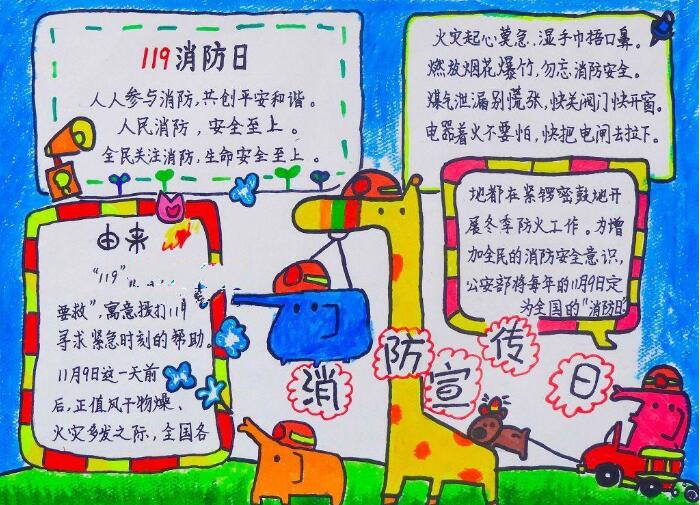 119消防日
人人参与消防,共创平安和谐。
人民消防,安全至上。
全民关注消防,生命安全至上。
火灾起心莫急,湿手巾捂口鼻。
燃放烟花爆竹,勿忘消防安全。
煤气泄漏别慌张,快关阀门快开窗。
电器着火不要怕,快把电闸去拉下。
由来
"119"
要救",寓意拨打119
寻求紧急时刻的帮助。
11月9日这一天前
后,正值风干物燥、
火灾多发之际,全国各
地都在紧锣密鼓地开
展冬季防火工作。为增
加全民的消防安全意识,
公安部将每年的11月9日定
为全国的"消防日"
消防宣传日